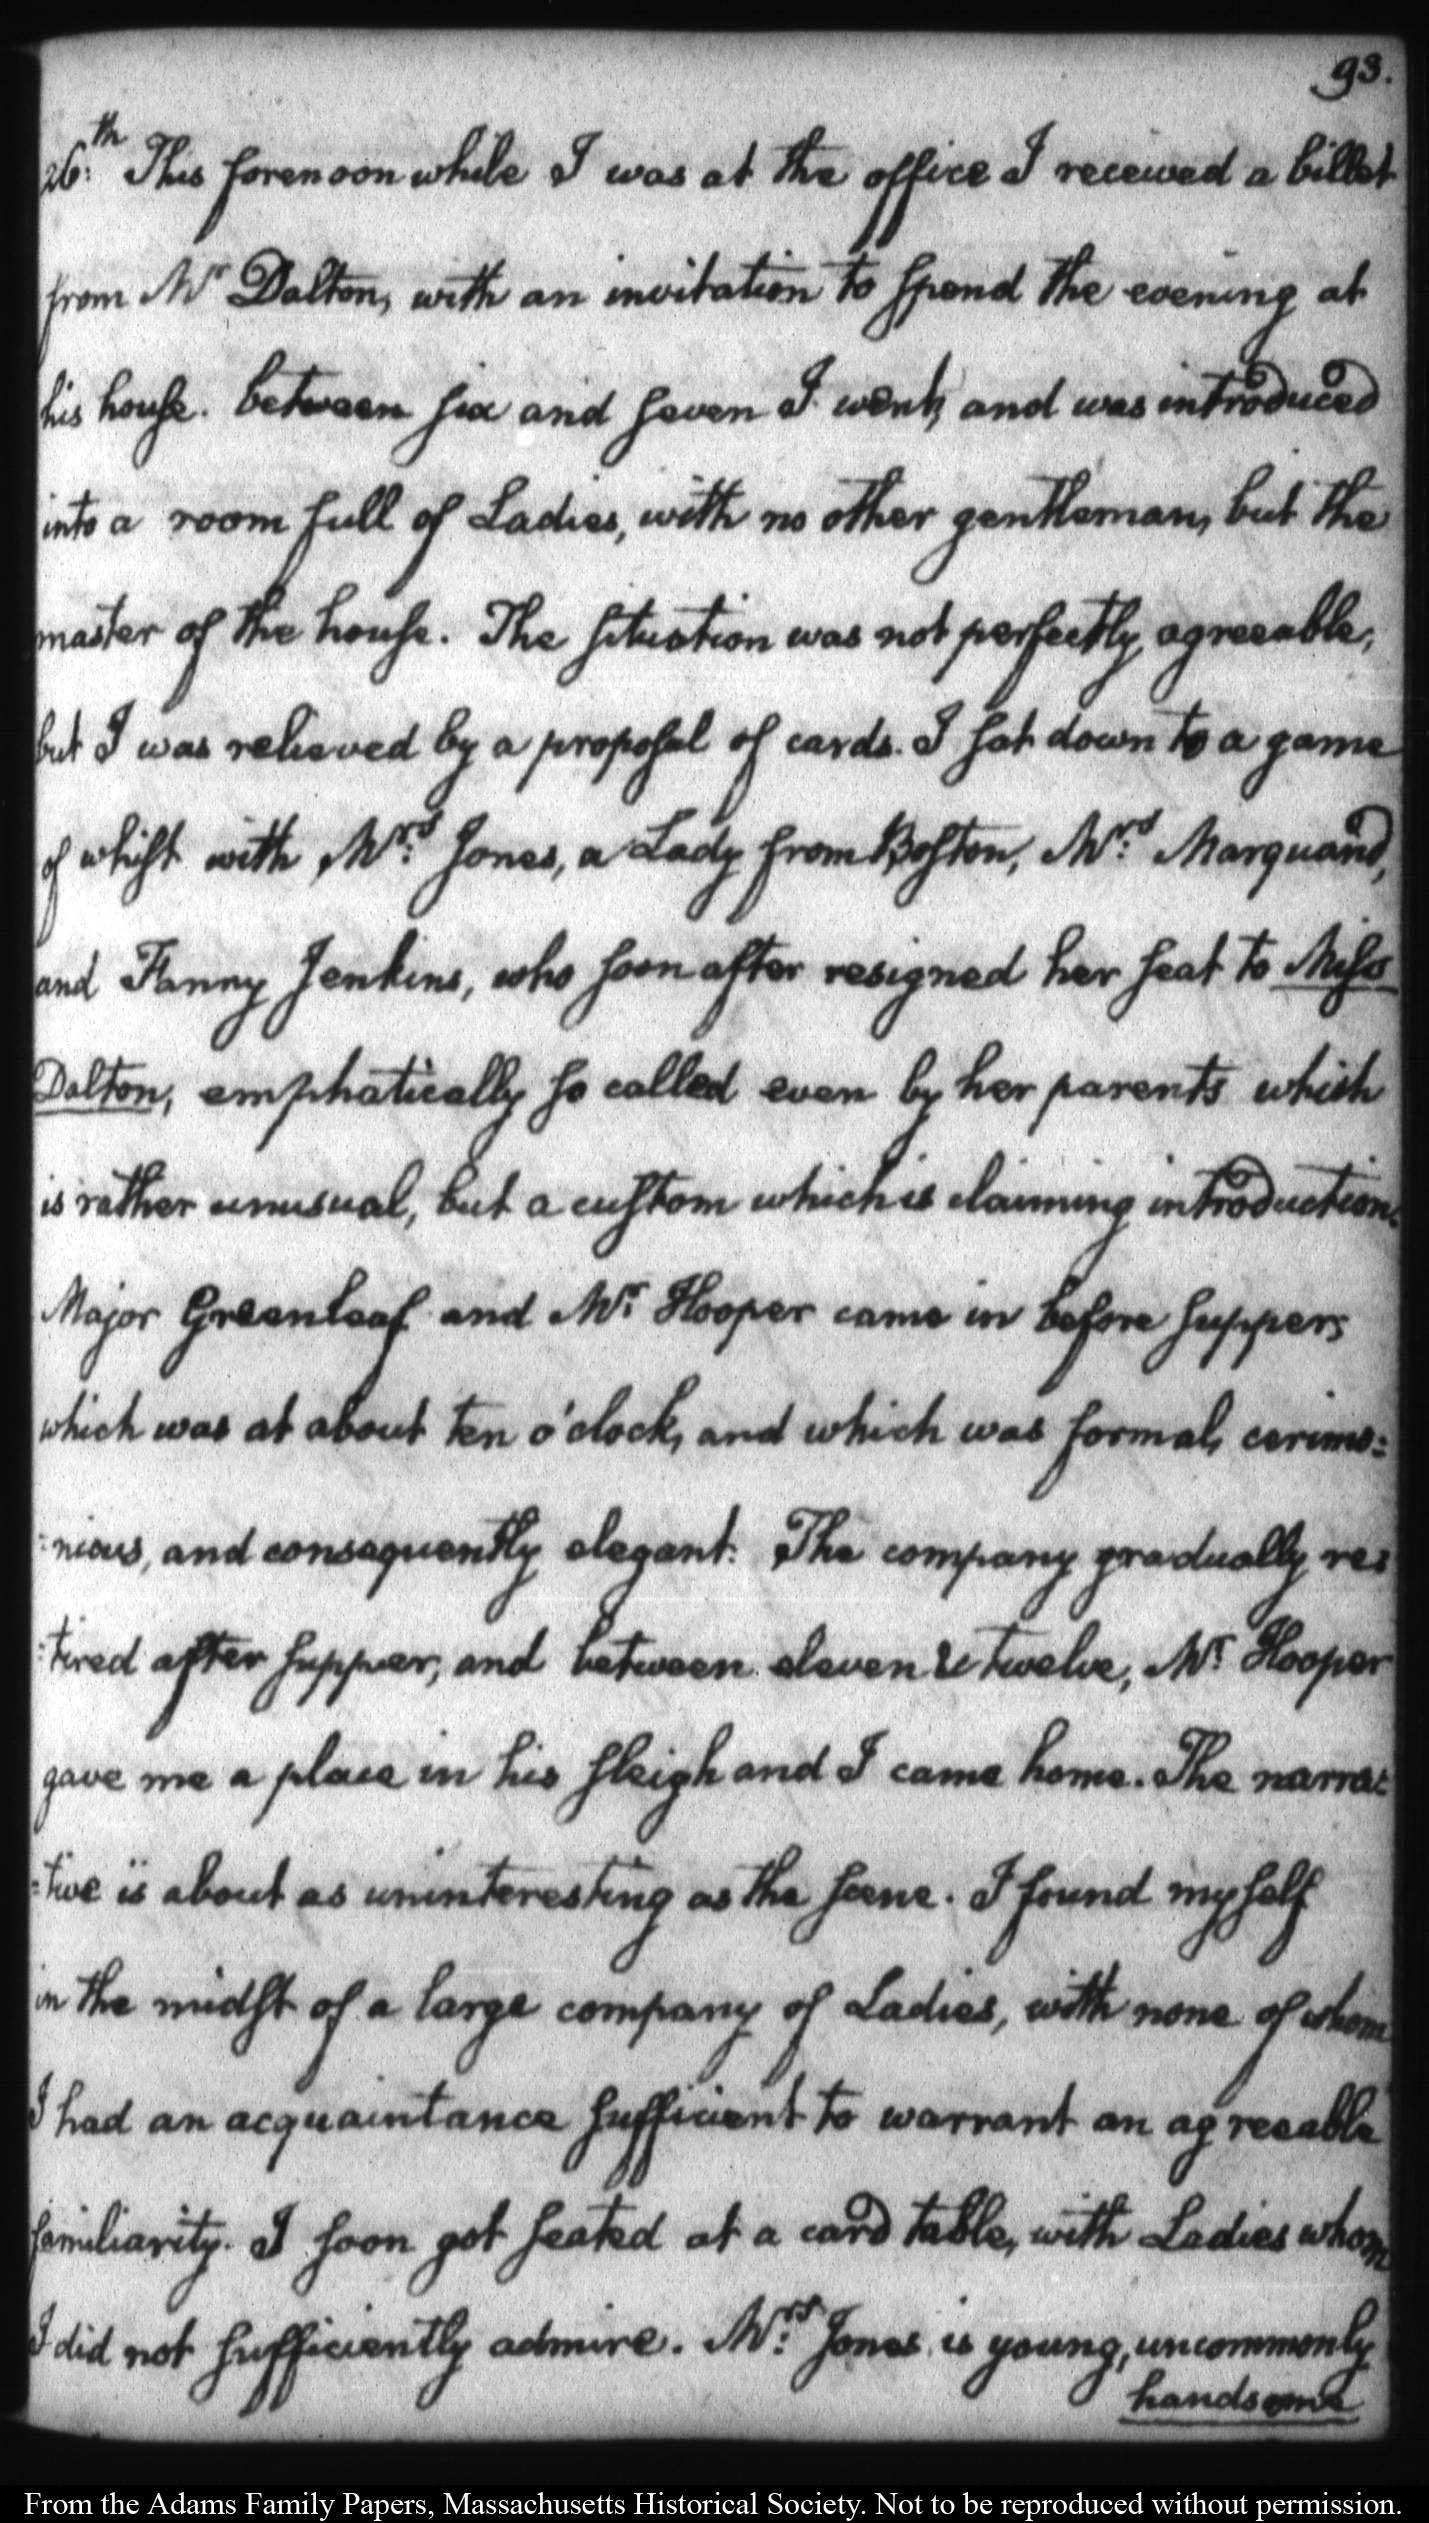 93.
26:th This forenoon while I was at the office I received a billet
from Mr Dalton, with an invitation to spend the evening at
his house. between six and seven I went, and was introduced
into a room full of Ladies, with no other gentleman, but the
master of the house. The situation was not perfectly agreeable,
but I was relieved by a proposal of cards. I sat down to a game
of whist with Mrs: Jones, a Lady from Boston, Mrs: Marquand,
and Fanny Jenkins, who soon after resigned her seat to Miss
Dalton, emphatically so called even by her parents which
is rather unusual, but a custom which is claiming introduction.
Major Greenleaf and Mr: Hooper came in before supper,
which was at about ten o'clock, and which was formal, cerimo=
=nious, and consequently elegant. The company gradually re=
=tired after supper, and between eleven & twelve, Mr: Hooper
gave me a place in his sleigh and I came home. The narra=
=tive is about as uninteresting as the scene. I found myself
in the midst of a large company of Ladies, with none of whom
I had an acquaintance sufficient to warrant an agreeable
familiarity. I soon got seated at a card table, with Ladies whom
I did not sufficiently admire. Mrs: Jones is young, uncommonly
handsome
From the Adams Family Papers, Massachusetts Historical Society. Not to be reproduced without permission.